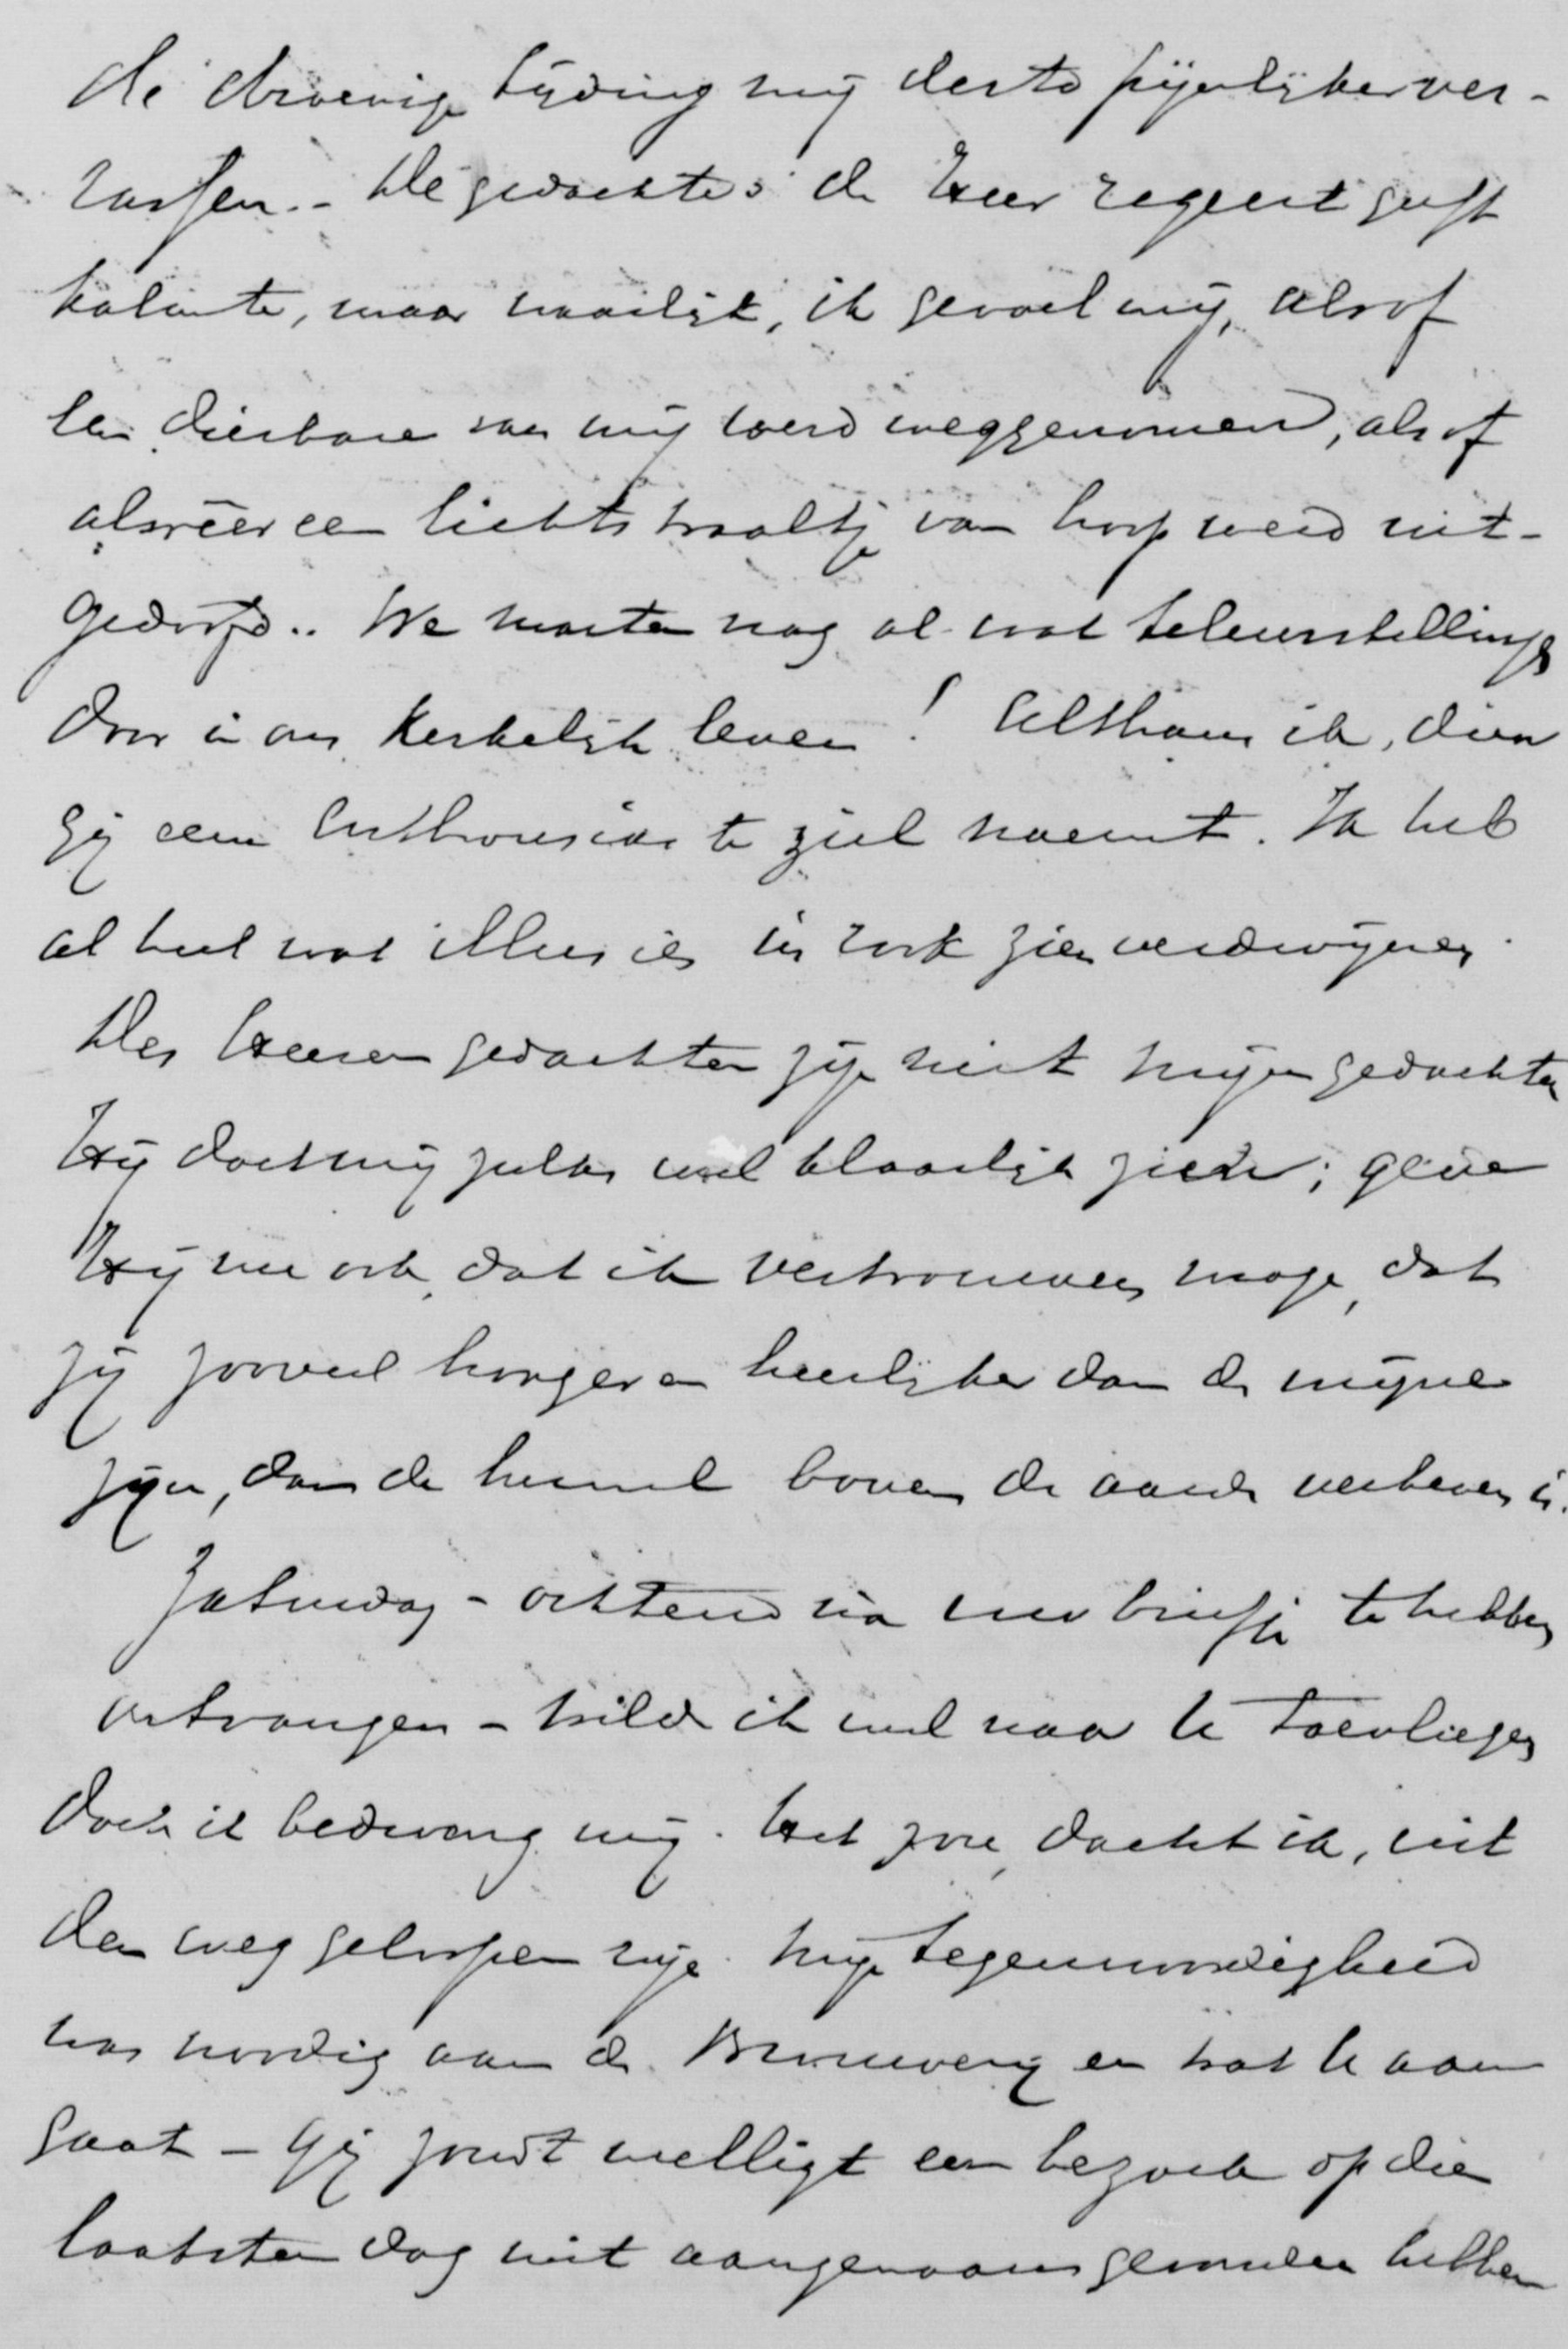 de droevige tijding mij desto pijnlijker ver-
rassen. - De gedachte: de Heer regeert geeft
kalmte, maar waarlijk, ik gevoel mij, alsof
een dierbare van mij werd weggenomen, alsof
alweer een lichtstraaltje van hoop werd uit-
gedoofd.. We moeten nog al wat teleurstellings
door in ons kerkelijk leven! Althans ik, dien
gij eene enthousiaste ziel noemt. Ik heb
al heel wat illusies in rook zien verdwijnen.
Des Heeren gedachten zijn niet mijn gedachten
Hij doet mij zulks wel klaarlijk zien; geve
Hij me ook, dat ik vertrouwen moge, dat
zij zooveel hooger en heerlijker dan de mijne
zijn, dan de hemel boven de aarde verheven is.
Zaturdag - ochtend na uw briefje te hebben
ontvangen - wilde ik wel naar U toevliegen
doch ik bedwong mij. Het zou, dacht ik, uit
den weg geloopen zijn. Mijn tegenwoordigheid
was noodig aan de Brouwerij en wat U aan
gaat - Gij zoudt wellicht een bezoek op dien
laatsten dag niet aangenaam gevonden hebben